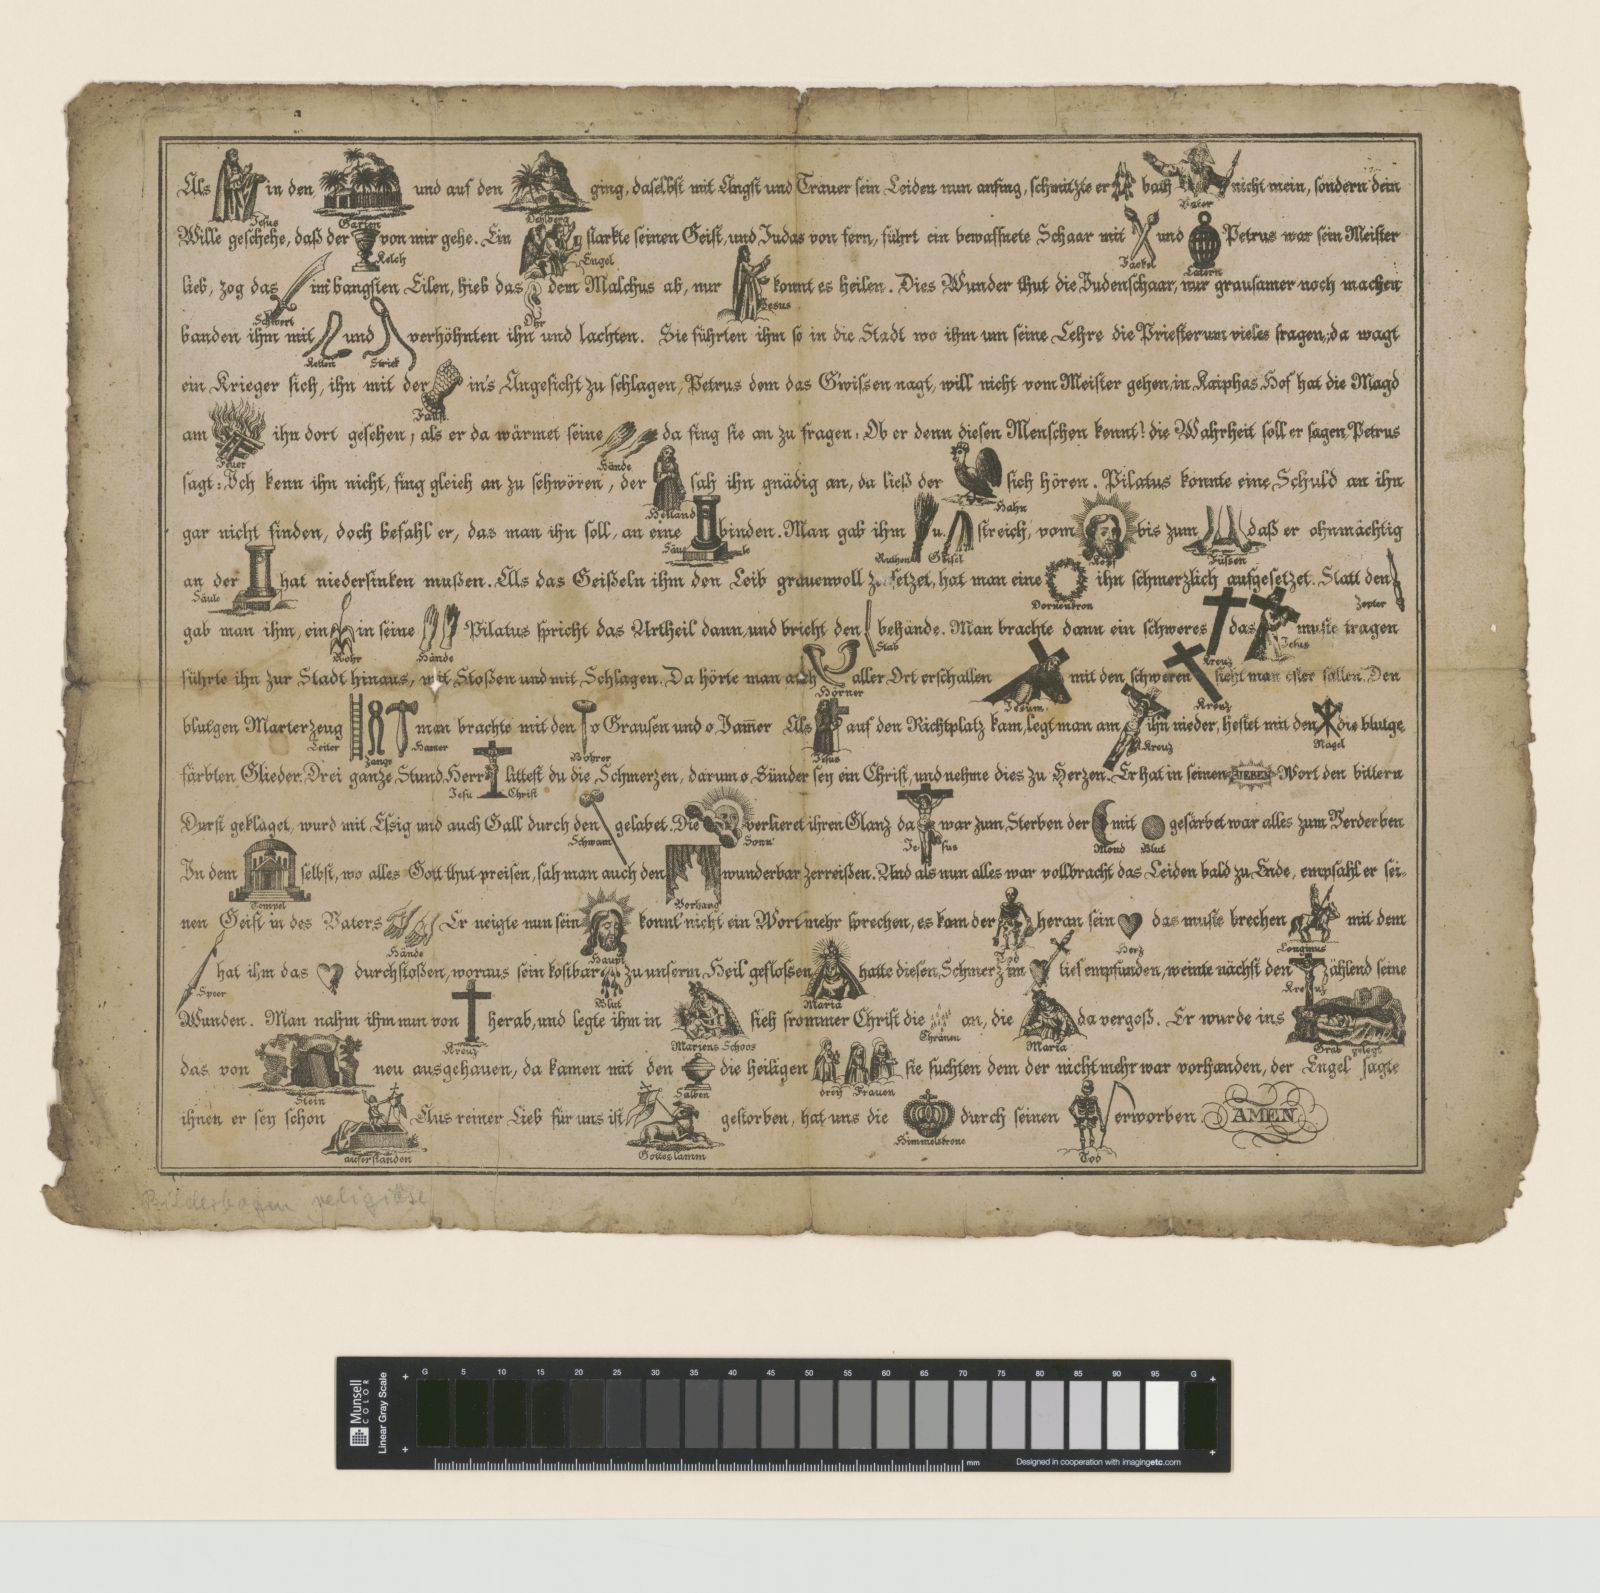 Als Jesus in den Garten und auf den Oehlberg ging, daselbst mit Angst und Trauer sein Leiden nun anfing, schwitzte er bath Vater nicht mein, sondern dein
Wille geschehe, daß der Kelch von mir gehe. Ein Engel starkte seinen Geist, und Judas von fern, führt ein bewaffnete Schaar mit Fackel und Latern Petrus war sein Meister
lieb, zog das Schwert im bangsten Eilen, hieb das Ohr dem Malchus ab, nur Jesus konnt es heilen. Dies Wunder thut die Judenschaar, nur grausamer noch machen
banden ihm mit Ketten und Strick verhöhnten ihn und lachten. Sie führten ihm so in die Stadt wo ihm um seine Lehre die Priester um vieles fragen, da wagt
ein Krieger sich, ihn mit der Faust in's Angesicht zu schlagen, Petrus dem das G'wissen nagt, will nicht vom Meister gehen, in Kaiphas Hof hat die Magd
am Feuer ihn dort gesehen, als er da wärmet seine Hände da fing sie an zu fragen: Ob er denn diesen Menschen kennt? die Wahrheit soll er sagen, Petrus
sagt: Ich kenn ihn nicht, fing gleich an zu schwören, der Heiland sah ihn gnädig an, da ließ der Hahn sich hören. Pilatus konnte eine Schuld an ihn
gar nicht finden, doch befahl er, das man ihn soll, an eine Säule binden. Man gab ihm Ruthen u. Geisel streich, vom Kopf bis zum Füssen daß er ohnmächtig
an der Säule hat niedersinken mußen. Als das Geißeln ihm den Leib grauenvoll zerfetzet, hat man eine Dornenkron ihn schmerzlich aufgesetzet. Statt den Zepter
gab man ihm, ein Rohr in seine Hände Pilatus spricht das Urtheil dann, und bricht den Stab behände. Man brachte dann ein schweres Kreuz das Jesus muste tragen
führte ihn zur Stadt hinaus, mit Stoßen und mit Schlagen. Da hörte man auch Hörner aller Ort erschallen Jesum mit den schweren Kreuz sieht man öfter fallen. Den
blutgen Marterzeug Leiter Zange Hamer man brachte mit den Bohrer o Grausen und o Jam̄er Als Jesus auf den Richtplatz kam, legt man am Kreuz ihn nieder, heftet mit den Nägel die blutge
färbten Glieder. Drei ganze Stund Herr Jesu Christ littest du die Schmerzen, darum o Sünder sey ein Christ, und nehme dies zu Herzen. Er hat in seinen SIEBEN Wort den bittern
Durst geklaget, wurd mit Essig und auch Gall durch den Schwam gelabet. Die Sonn' verlieret ihren Glanz da Jesus war zum Sterben der Mond mit Blut gefärbet war alles zum Verderben
In dem Tempel selbst, wo alles Gott thut preisen, sah man auch den Vorhang wunderbar zerreißen. Und als nun alles war vollbracht das Leiden bald zu Ende, empfahl er sei-
nen Geist in des Vaters Hände Er neigte nun sein Haupt konnt' nicht ein Wort mehr sprechen, es kam der Tod heran sein Herz das muste brechen Longinus mit dem
Speer hat ihm das durchstoßen, woraus sein kostbar Blut zu unserm Heil geflossen Maria hatte diesen Schmerz im tief empfunden, weinte nächst den Kreuz zählend seine
Wunden. Man nahm ihm nun von Kreuz herab, und legte ihm in Mariens Schoos sieh frommer Christ die Thränen an, die Maria da vergoß. Er wurde ins Grab gelegt
das von Stein neu ausgehauen, da kamen mit den Salben die heiligen drey Frauen sie suchten dem der nicht mehr war vorhanden, der Engel sagte
ihnen er sey schon auferstanden Aus reiner Lieb für uns ist Gotteslamm gestorben, hat uns die Himmelskrone durch seinen Tod erworben. AMEN
Bilderbogen religiöse
Munsell COLOR
Linear Gray Scale
G 5 10 15 20 25 30 35 40 45 50 55 60 65 70 75 80 85 90 95 G
mm
Designed in cooperation with imagingetc.com